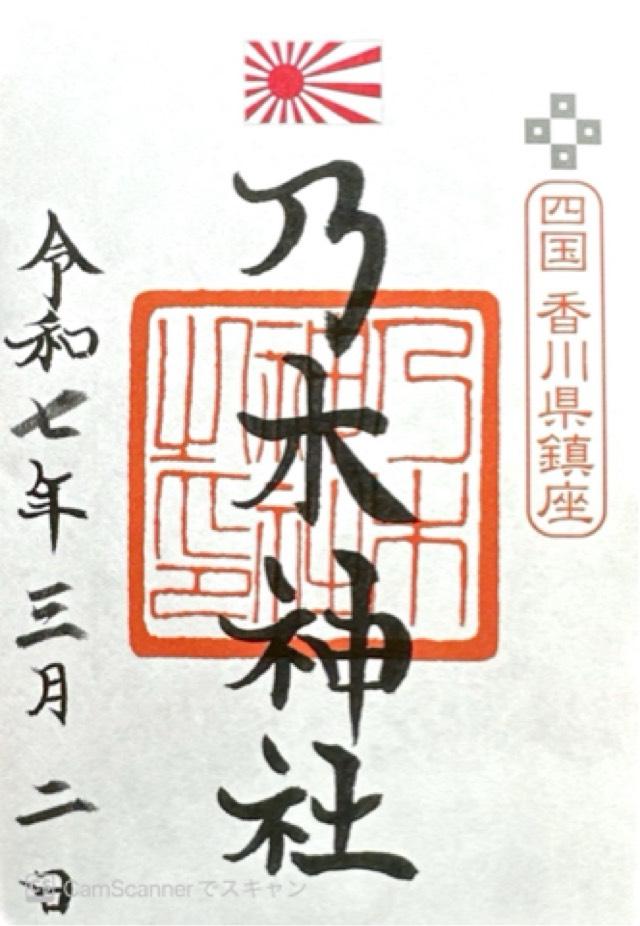 四国 香川県鎮座
乃木神社
乃木
神社
之印
令和七年三月二日
CamScannerでスキャン